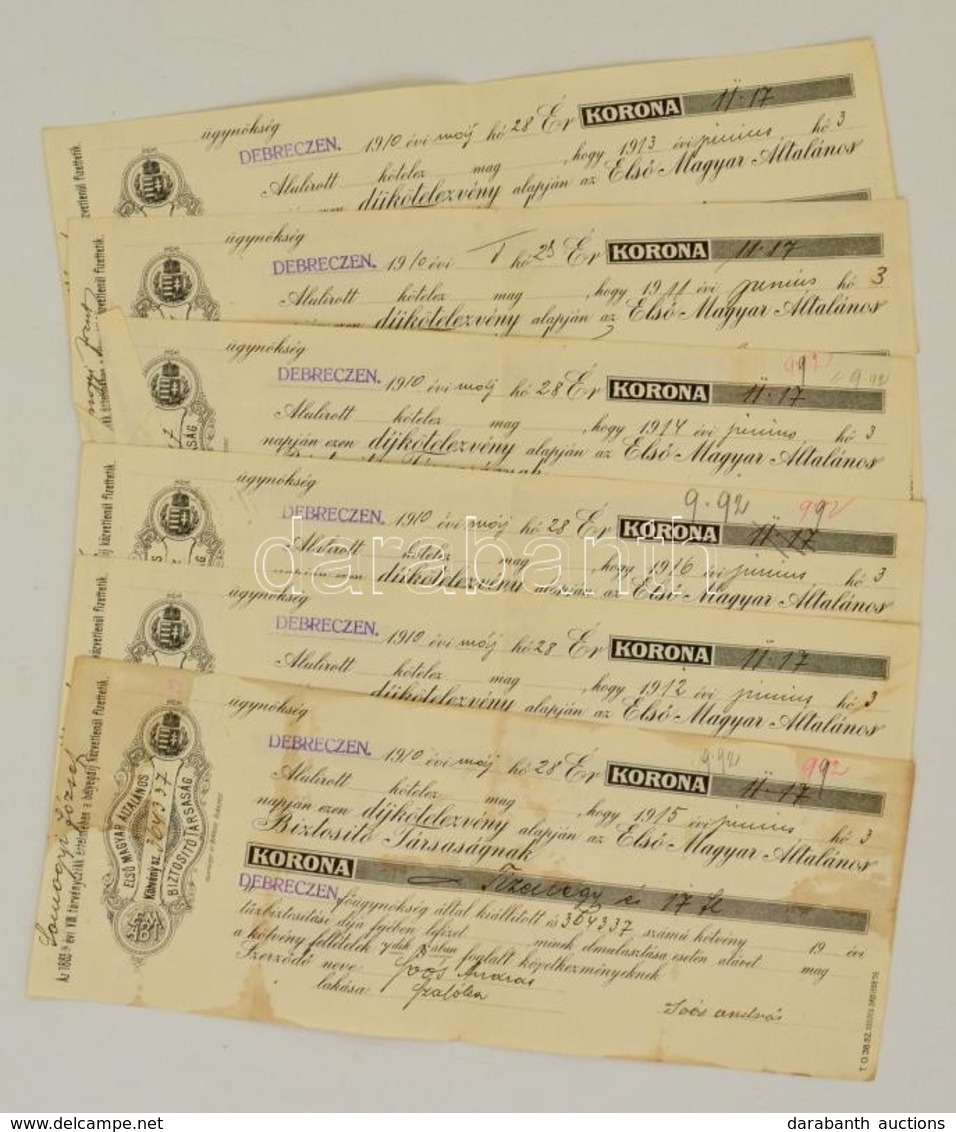 ügynökség
DEBRECZEN. 1910 évi máj hó 28 Ér KORONA 11·17
Alulirott kötelez mag , hogy 1913 évi junius hó 3
díjkötelezvény alapján az Első Magyar Általános
ügynökség
DEBRECZEN. 1910 évi hó 28 Ér KORONA 11·17
Alulirott kötelez mag , hogy 1911 évi junius hó 3
díjkötelezvény alapján az Első Magyar Általános
ügynökség
DEBRECZEN. 1910 évi máj hó 28 Ér KORONA 11·17
992
9 92
Alulirott kötelez mag , hogy 1914 évi junius hó 3
napján ezen díjkötelezvény alapján az Első Magyar Általános
ügynökség
9·92 992
DEBRECZEN. 1910 évi máj hó 28 Ér KORONA 11·17
Alulirott kötelez mag , hogy 1916 évi junius hó 3
napján ezen díjkötelezvény alapján az Első Magyar Általános
ügynökség
DEBRECZEN. 1910 évi máj hó 28 Ér KORONA 11·17
Alulirott kötelez mag , hogy 1912 évi junius hó 3
díjkötelezvény alapján az Első Magyar Általános
ügynökség
9·92 992
DEBRECZEN. 1910 évi máj hó 28 Ér KORONA 11·17
Alulirott kötelez mag , hogy 1915 évi junius hó 3
napján ezen díjkötelezvény alapján az Első Magyar Általános
Biztosító Társaságnak
KORONA Tizenegy és 17 fl
DEBRECZEN főügynökség által kiállított és 364337 számú kötvény
tűzbiztosítási díja fejében lefizet minek elmulasztása esetén alávet 19 évi
a kötvény feltételek 7dik §ában foglalt következményeknek mag
Szerződő neve: Soós András
lakása:
Soós andrás
ELSŐ MAGYAR ÁLTALÁNOS
Kötvény sz. 364337
BIZTOSÍTÓ TÁRSASÁG
Somogyi József
Az 1883ik évi VIII. törvényczikk értelmében a bélyegdíj közvetlenül fizettetik.
darabanth
darabanth auctions